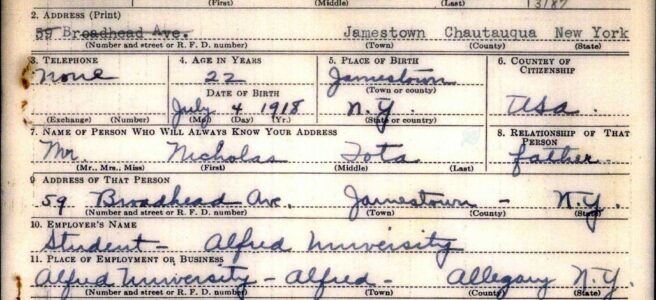 (First) (Middle) (Last)
2. ADDRESS (Print)
59 Broadhead Ave. Jamestown Chautauqua New York
(Number and street or R. F. D. number) (Town) (County) (State)
3. TELEPHONE 4. AGE IN YEARS 5. PLACE OF BIRTH 6. COUNTRY OF
CITIZENSHIP
None 22 Jamestown
DATE OF BIRTH (Town or county)
July 4 1918 N.Y. USA.
(Exchange) (Number) (Mo.) (Day) (Yr.) (State or country)
7. NAME OF PERSON WHO WILL ALWAYS KNOW YOUR ADDRESS 8. RELATIONSHIP OF THAT
PERSON
Mr. Nicholas Tota father.
(Mr., Mrs., Miss) (First) (Middle) (Last)
9 ADDRESS OF THAT PERSON
59 Broadhead Ave. Jamestown - N.Y.
(Number and street or R. F. D. number) (Town) (County) (State)
10. EMPLOYER'S NAME
Student - Alfred University
11. PLACE OF EMPLOYMENT OR BUSINESS
Alfred University - Alfred - Allegany N.Y.
(Number and street or R. F. D. number) (Town) (County) (State)